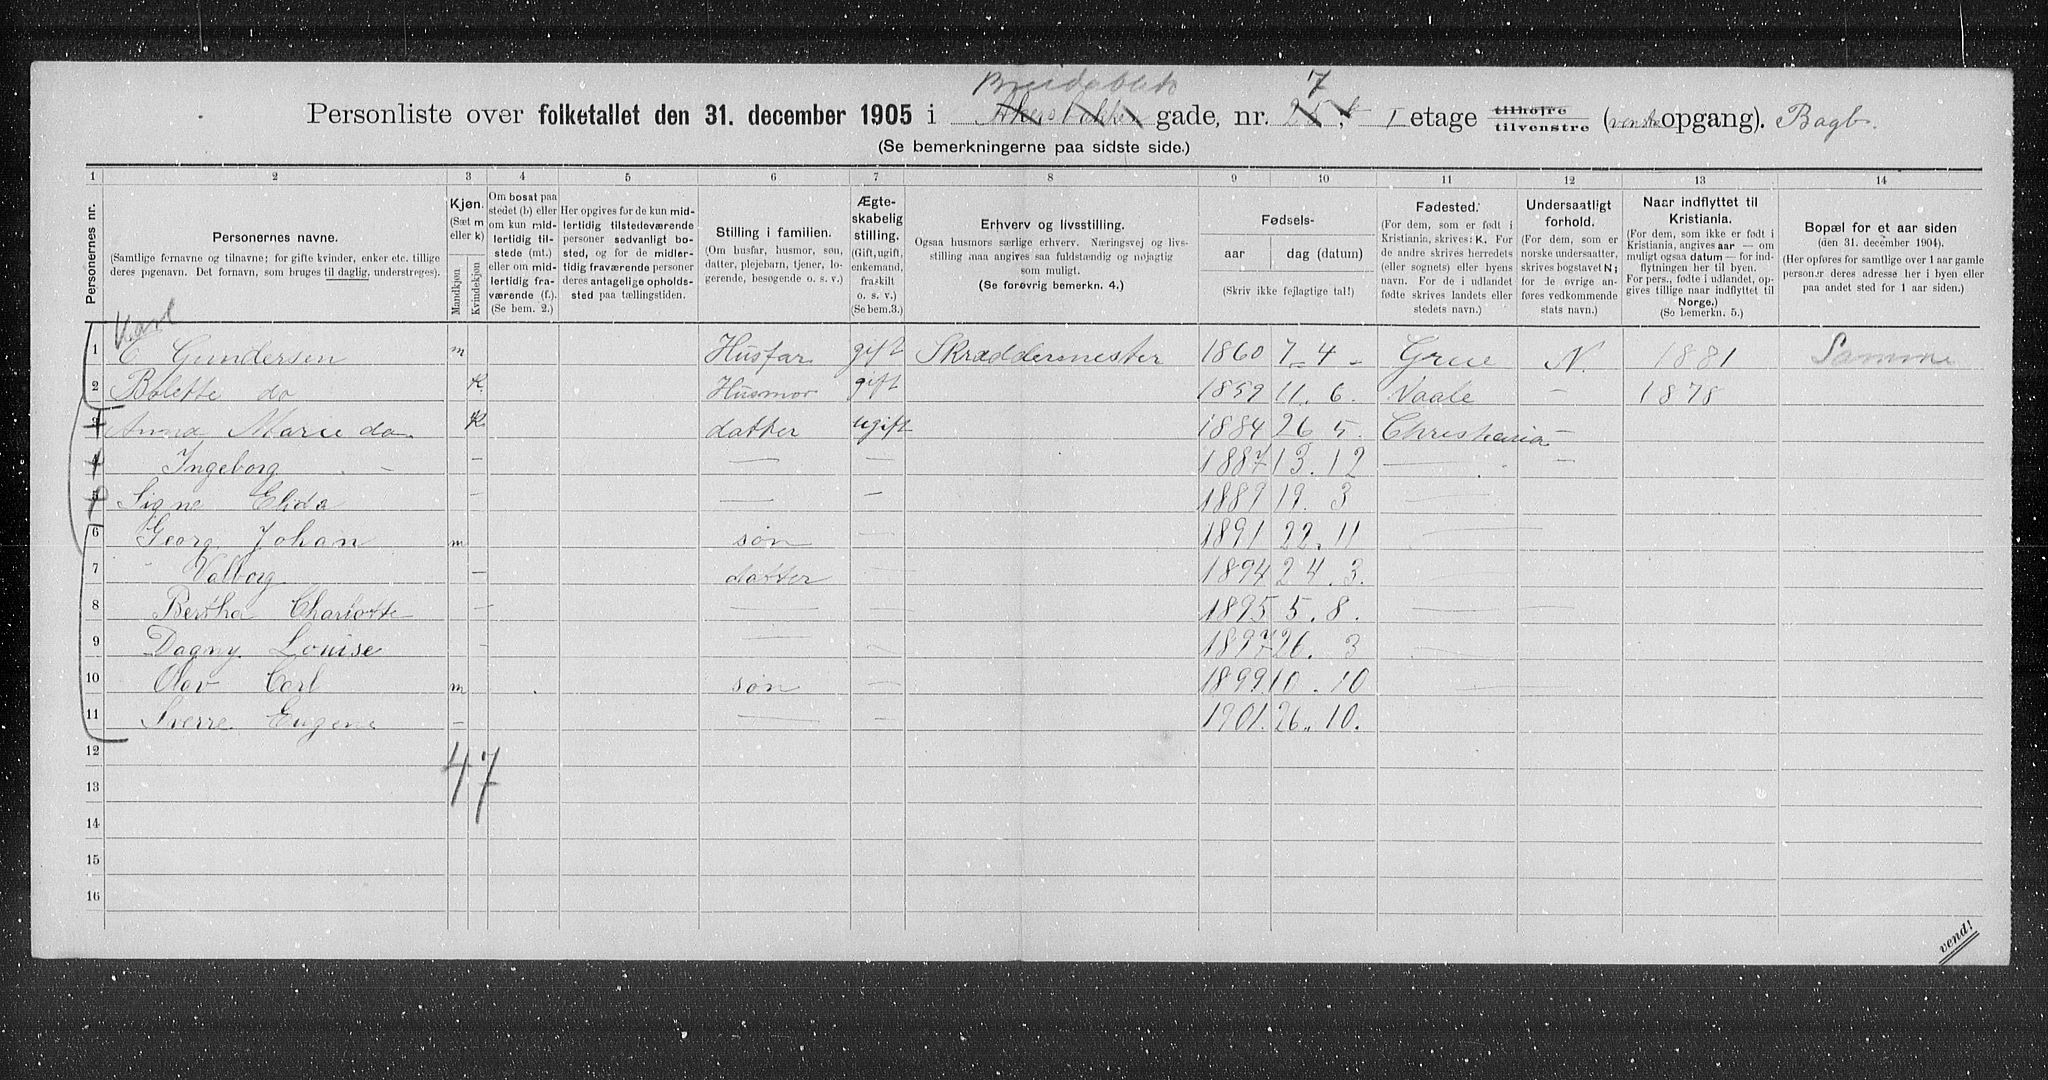 Breidablik 7
Personliste over folketallet den 31. december 1905 i gade, nr. 25, I etage tilhøjre tilvenstre (venstre opgang). Bagb.
(Se bemerkningerne paa sidste side.)
1 2 3 4 5 6 7 8 9 10 11 12 13 14
Personernes nr.
Personernes navne.
(Samtlige fornavne og tilnavne; for gifte kvinder, enker etc. tillige deres pigenavn. Det fornavn, som bruges til daglig, understreges).
Kjøn.
(Sæt m eller k)
Mandkjøn
Kvindekjøn
Om bosat paa stedet (b) eller om kun midlertidig tilstede (mt.) eller om midlertidig fraværende (f.).
(Se bem. 2.)
Her opgives for de kun midlertidig tilstedeværende personer sedvanligt bosted, og for de midlertidig fraværende personer deres antagelige opholdssted paa tællingstiden.
Stilling i familien.
(Om husfar, husmor, søn, datter, plejebarn, tjener, logerende, besøgende o. s. v.)
Ægteskabelig stilling.
(Gift, ugift, enkemand, fraskilt o. s. v.)
(Se bem.3.)
Erhverv og livsstilling.
Ogsaa husmors særlige erhverv. Næringsvej og livsstilling maa angives saa fuldstændig og nøjagtig som muligt.
(Se forøvrig bemerkn. 4.)
Fødsels-
aar dag (datum)
(Skriv ikke fejlagtige tal!)
Fødested.
(For dem, som er født i Kristiania, skrives: K. For de andre skrives herredets (eller sognets) eller byens navn. For de i udlandet fødte skrives landets eller stedets navn.)
Undersaatligt forhold.
(For dem, som er norske undersaatter, skrives bogstavet N; for de øvrige anføres vedkommende stats navn.)
Naar indflyttet til Kristiania.
(For dem, som ikke er født i Kristiania, angives aar — om muligt ogsaa datum — for indflytningen her til byen. For pers., fødte i udlandet, opgives tillige naar indflyttet til Norge.)
(Se bemerkn. 5.)
Bopæl for et aar siden
(den 31. december 1904).
(Her opføres for samtlige over 1 aar gamle personer deres adresse her i byen eller paa andet sted for 1 aar siden.)
Karl
1 C Gundersen m Husfar gift Skræddermester 1860 7 - 4 - Grue N. 1881 Samme
2 Bolette do k. Husmor gift 1859 11. 6. Vaale — 1878
3 Anna Marie do. k datter ugift 1884 26 5. Christiania —
4 Ingeborg — — — 1887 13. 12 — —
5 Signe Elida — — — 1889 19. 3 —
6 Georg Johan m søn — 1891 22. 11 — —
7 Valborg — datter — 1894 24. 3.
8 Bertha Charlotte — — — 1895 5. 8. — —
9 Dagny Louise — — — 1897 26. 3 —
10 Olav Carl m søn — 1899 10. 10 —
11 Sverre Eugene — — — 1901. 26. 10.
12
4 7
13
14
15
16
vend!